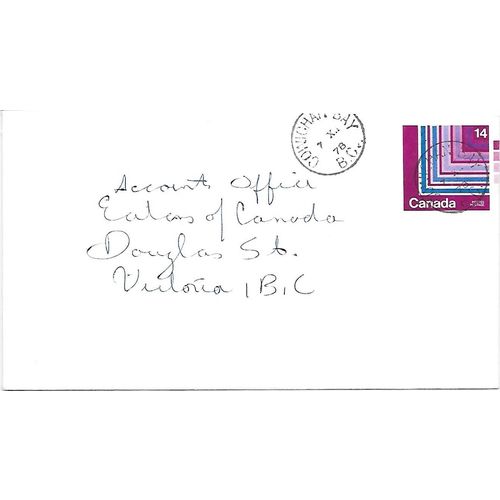 COWICHAN BAY
7 XI
78
B.C.
14
Canada
Accounts Office
Eatons of Canada
Douglas St.
Victoria, B.C